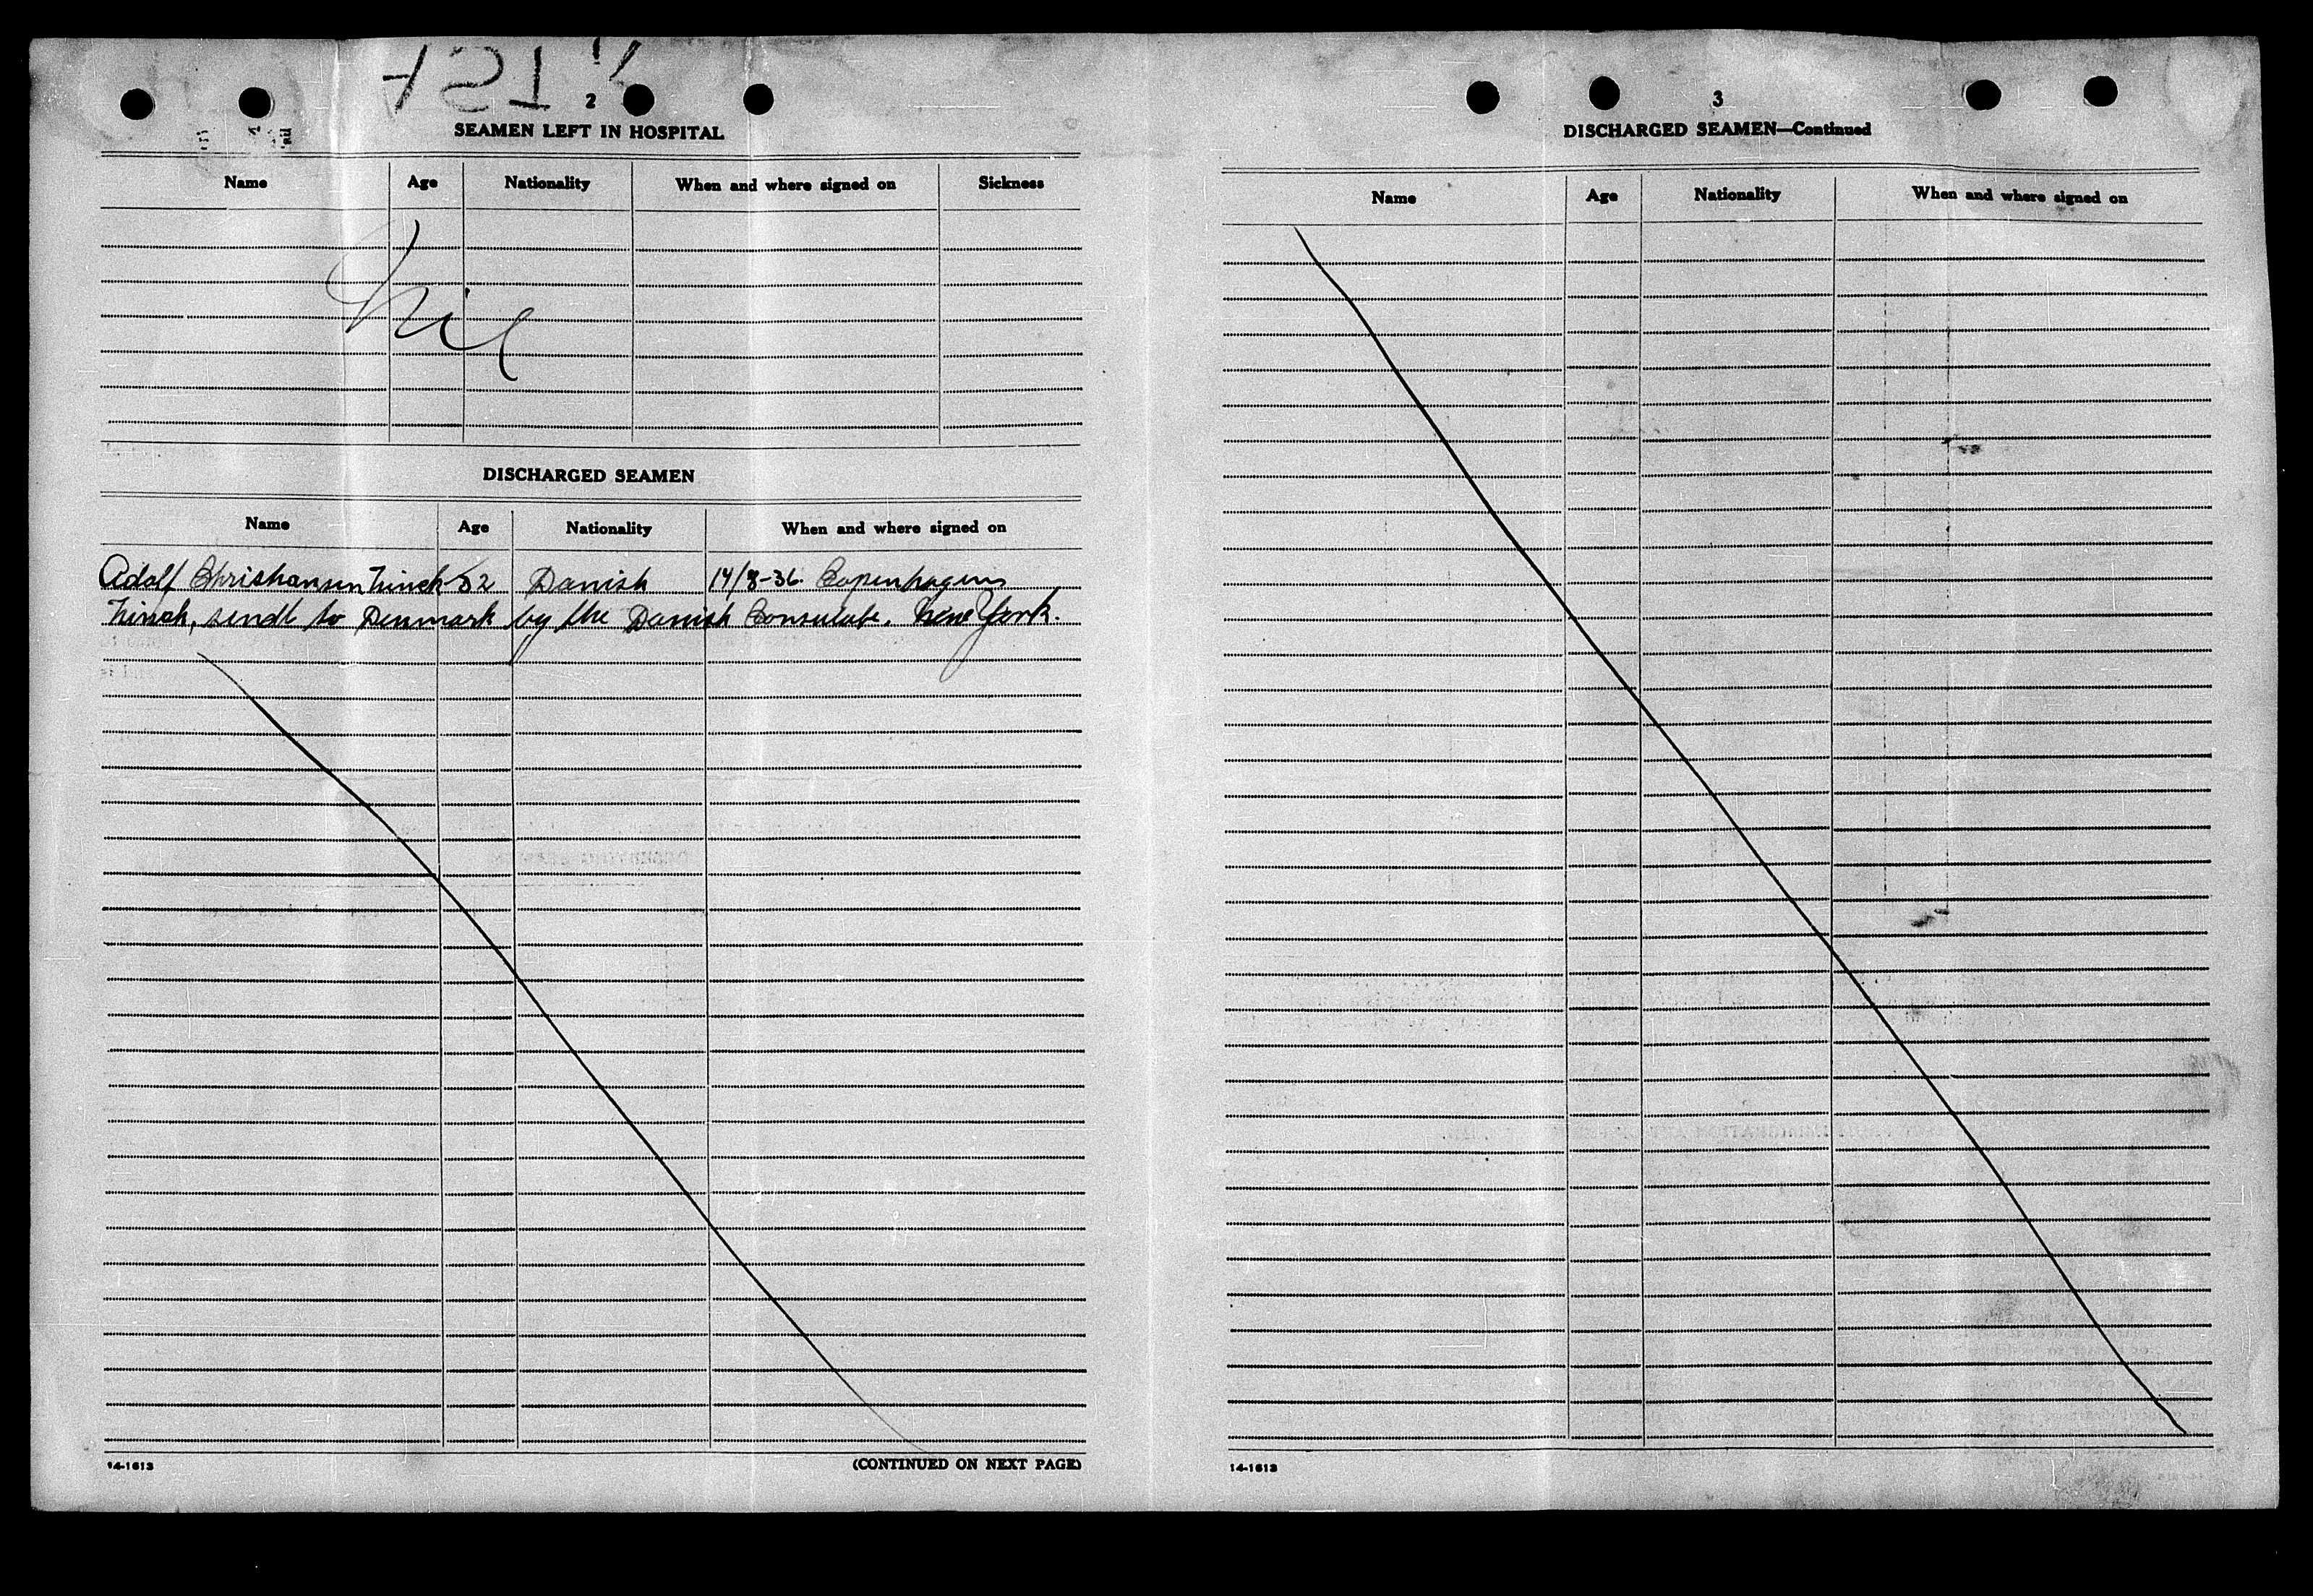 2
SEAMEN LEFT IN HOSPITAL
Name Age Nationality When and where signed on Sickness
Nil
DISCHARGED SEAMEN
Name Age Nationality When and where signed on
Adolf Christiansen Danish Copenhagen
sendt to Denmark by the Danish Consulate. New York.
14-1613
(CONTINUED ON NEXT PAGE)
3
DISCHARGED SEAMEN—Continued
Name Age Nationality When and where signed on
14-1613